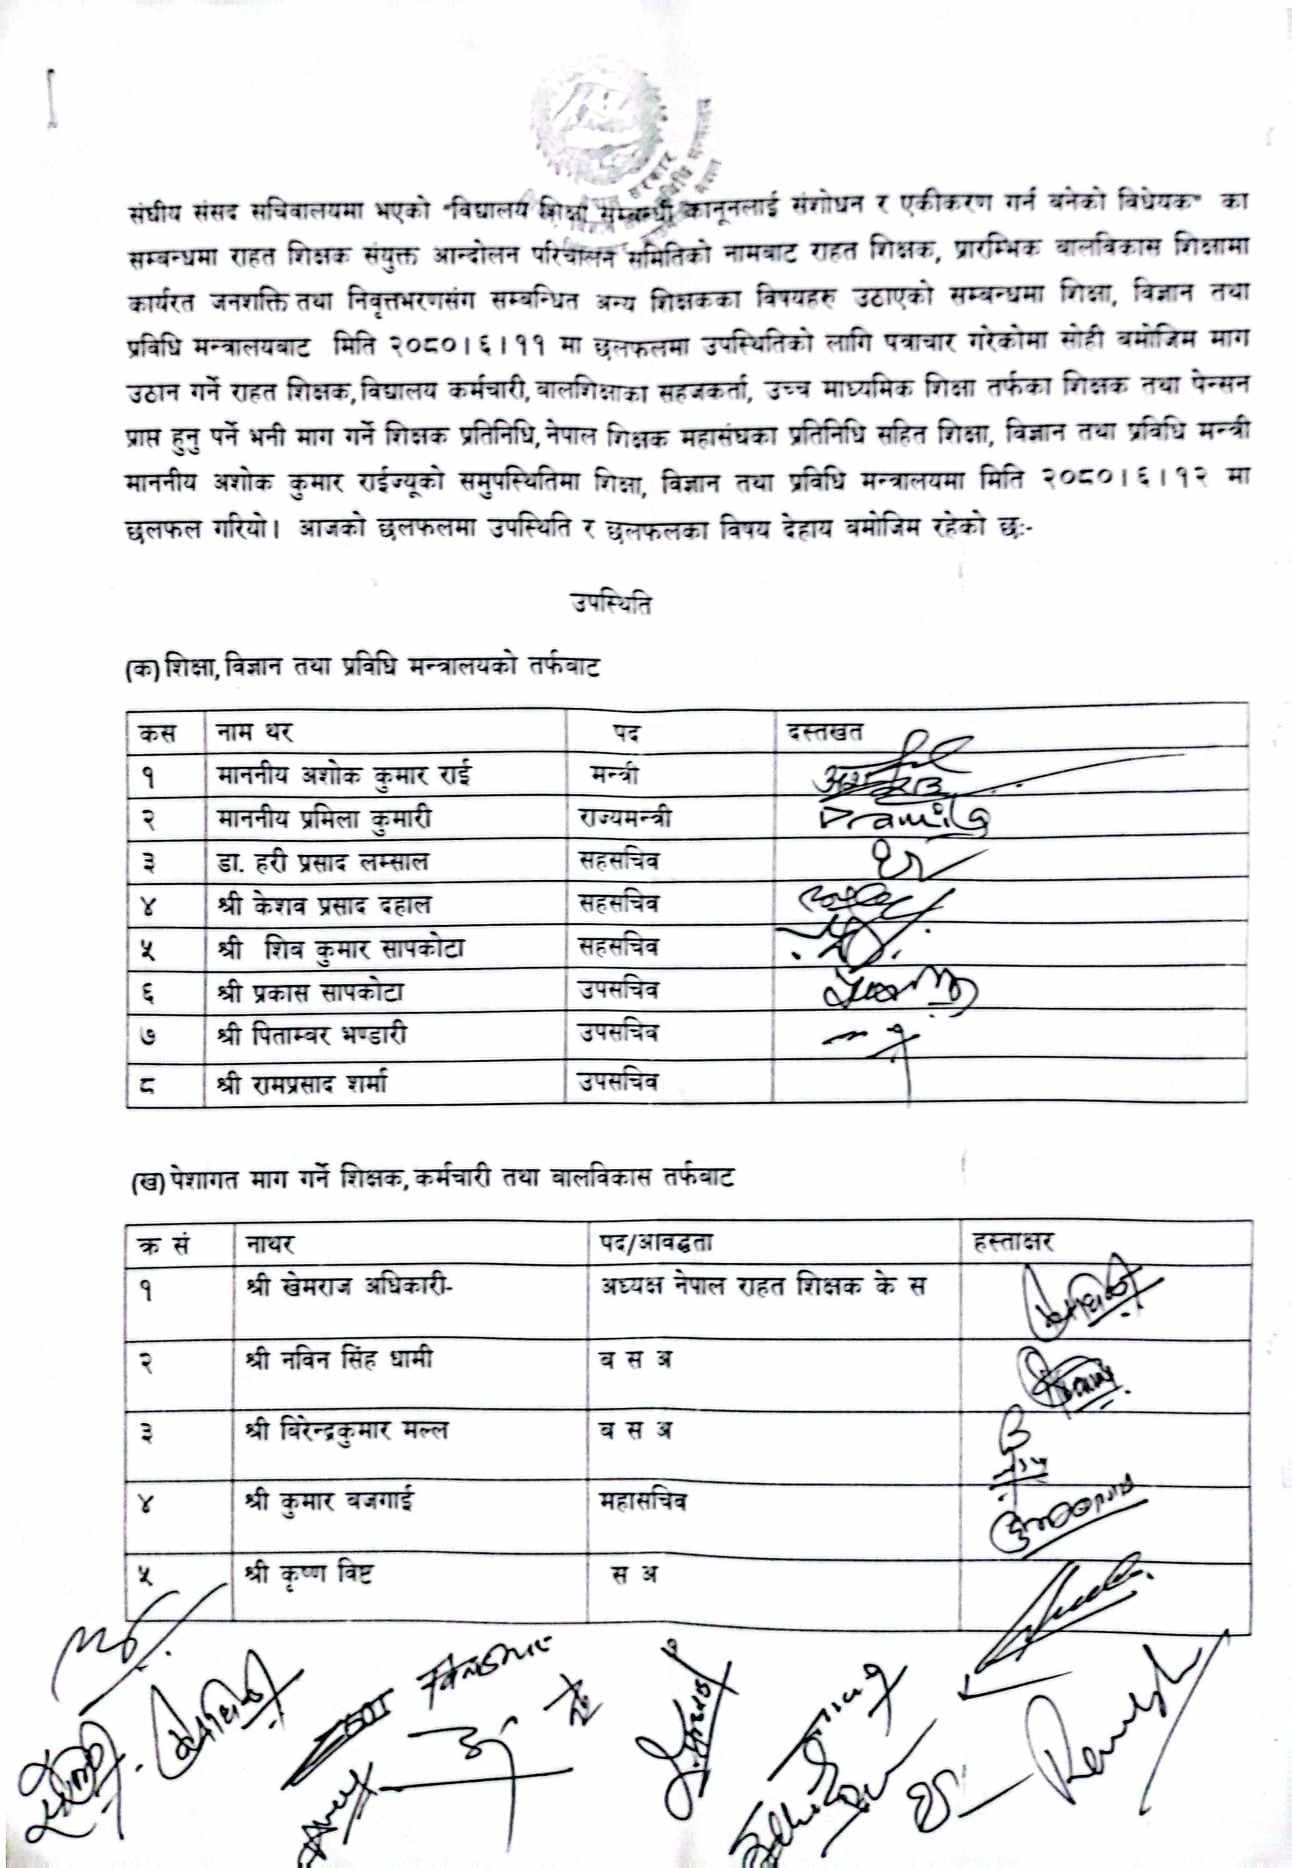 संघीय संसद सचिवालयमा भएको "विद्यालय शिक्षा सम्बन्धी कानूनलाई संशोधन र एकीकरण गर्न बनेको विधेयक" का
सम्बन्धमा राहत शिक्षक संयुक्त आन्दोलन परिचालन समितिको नामबाट राहत शिक्षक, प्रारम्भिक बालविकास शिक्षामा
कार्यरत जनशक्ति तथा निवृत्तभरणसंग सम्बन्धित अन्य शिक्षकका विषयहरु उठाएको सम्बन्धमा शिक्षा, विज्ञान तथा
प्रविधि मन्त्रालयबाट मिति २०८०।६।११ मा छलफलमा उपस्थितिको लागि पत्राचार गरेकोमा सोही बमोजिम माग
उठान गर्ने राहत शिक्षक, विद्यालय कर्मचारी, बालशिक्षाका सहजकर्ता, उच्च माध्यमिक शिक्षा तर्फका शिक्षक तथा पेन्सन
प्राप्त हुनु पर्ने भनी माग गर्ने शिक्षक प्रतिनिधि, नेपाल शिक्षक महासंघका प्रतिनिधि सहित शिक्षा, विज्ञान तथा प्रविधि मन्त्री
माननीय अशोक कुमार राईज्यूको समुपस्थितिमा शिक्षा, विज्ञान तथा प्रविधि मन्त्रालयमा मिति २०८०।६।१२ मा
छलफल गरियो। आजको छलफलमा उपस्थिति र छलफलका विषय देहाय बमोजिम रहेको छः-
उपस्थिति
(क) शिक्षा, विज्ञान तथा प्रविधि मन्त्रालयको तर्फबाट
कस नाम थर पद दस्तखत
१ माननीय अशोक कुमार राई मन्त्री
२ माननीय प्रमिला कुमारी राज्यमन्त्री Pramila
३ डा. हरी प्रसाद लम्साल सहसचिव
४ श्री केशव प्रसाद दहाल सहसचिव
५ श्री शिव कुमार सापकोटा सहसचिव
६ श्री प्रकास सापकोटा उपसचिव
७ श्री पिताम्बर भण्डारी उपसचिव
८ श्री रामप्रसाद शर्मा उपसचिव
(ख) पेशागत माग गर्ने शिक्षक, कर्मचारी तथा बालविकास तर्फबाट
क्र सं नाथर पद/आवद्धता हस्ताक्षर
१ श्री खेमराज अधिकारी- अध्यक्ष नेपाल राहत शिक्षक के स
२ श्री नविन सिंह धामी ब स अ
३ श्री बिरेन्द्रकुमार मल्ल ब स अ
४ श्री कुमार बजगाई महासचिव
५ श्री कृष्ण विष्ट स अ